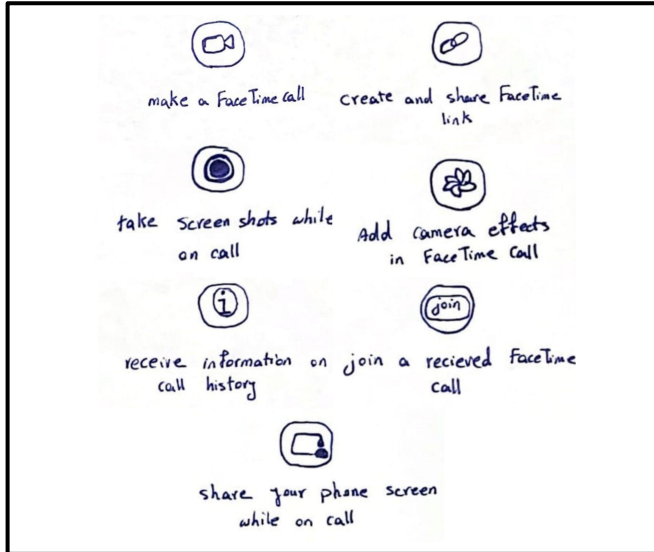 make a FaceTime call
create and share FaceTime
link
take screen shots while
on call
Add camera effects
in FaceTime Call
i
receive information on
call history
join
join a recieved FaceTime
call
share your phone screen
while on call